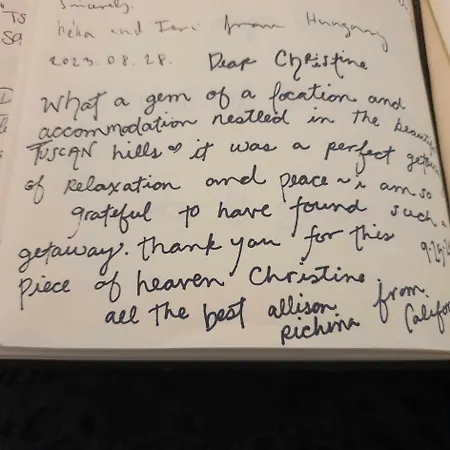 Sincerely,
from Hungary
2023.08.28.
Dear Christine
What a gem of a location and
accommodation nestled in the
TUSCAN hills ♡ it was a perfect
of relaxation and peace ~ i am so
grateful to have found such a
getaway. thank you for this
piece of heaven Christine
all the best allison from
Richina